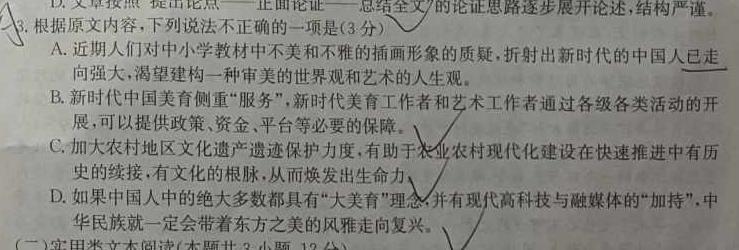 D. 文章按照“提出论点——正面论证——总结全文”的论证思路逐步展开论述,结构严谨。
3. 根据原文内容,下列说法不正确的一项是(3 分)
A. 近期人们对中小学教材中不美和不雅的插画形象的质疑,折射出新时代的中国人已走
向强大,渴望建构一种审美的世界观和艺术的人生观。
B. 新时代中国美育侧重“服务”,新时代美育工作者和艺术工作者通过各级各类活动的开
展,可以提供政策、资金、平台等必要的保障。
C. 加大农村地区文化遗产遗迹保护力度,有助于农业农村现代化建设在快速推进中有历
史的续接,有文化的根脉,从而焕发出生命力。
D. 如果中国人中的绝大多数都具有“大美育”理念,并有现代高科技与融媒体的“加持”,中
华民族就一定会带着东方之美的风雅走向复兴。
(二)实用类文本阅读(本题共 3 小题,12 分)